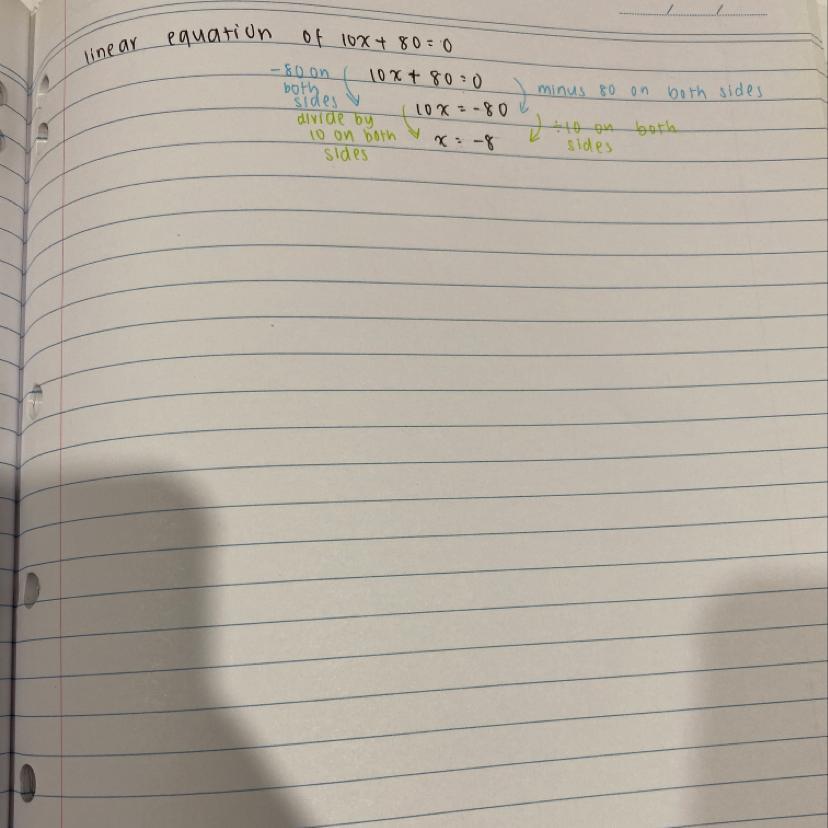 linear equation of 10x + 80 = 0
-80 on both sides
10x + 80 = 0
minus 80 on both sides
divide by 10 on both sides
10x = -80
÷10 on both sides
x = -8